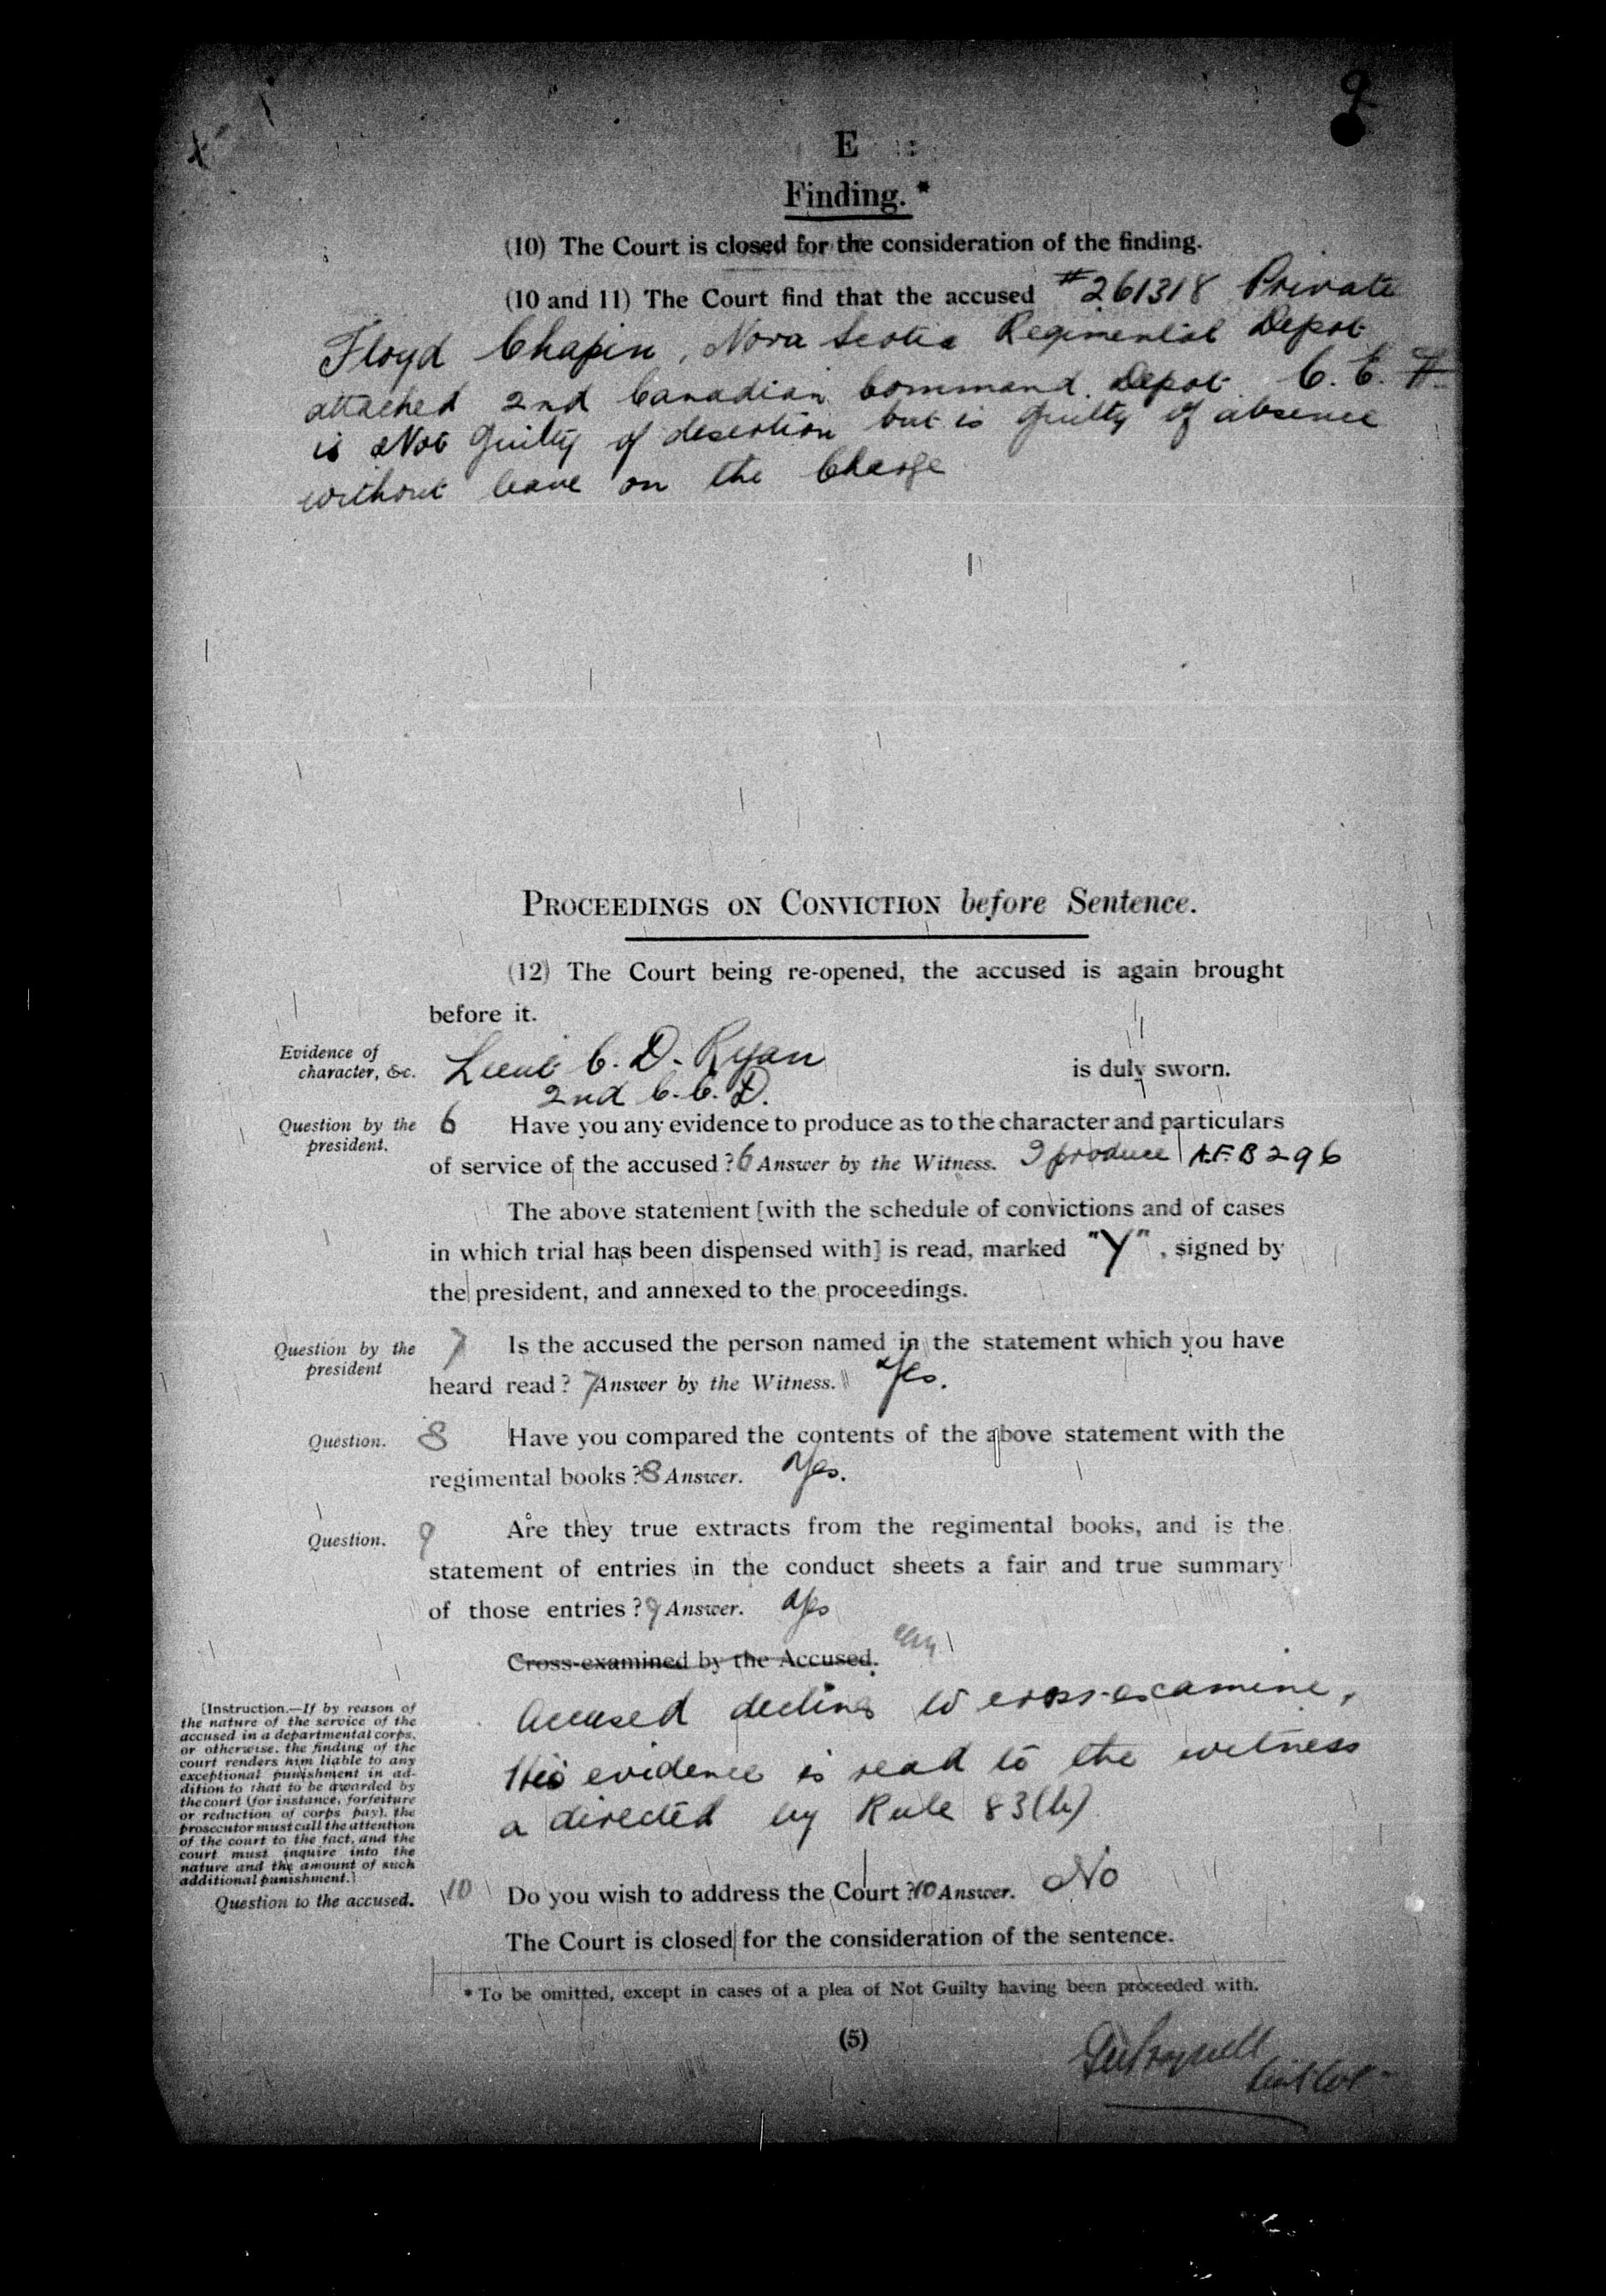 9
E
Finding.*
(10) The Court is closed for the consideration of the finding.
(10 and 11) The Court find that the accused #261318 Private
Floyd Chapin, Nova Scotia Regimental Depot
attached 2nd Canadian Command Depot C. E. F.
is Not Guilty of desertion but is guilty of absence
without leave on the Charge
PROCEEDINGS ON CONVICTION before Sentence.
(12) The Court being re-opened, the accused is again brought
before it.
Evidence of
character, &c.
Lieut C. D. Ryan is duly sworn.
2nd C.C.D.
Question by the
president.
6 Have you any evidence to produce as to the character and particulars
of service of the accused? 6 Answer by the Witness. I produce A.F. B 296
The above statement [with the schedule of convictions and of cases
in which trial has been dispensed with] is read, marked "Y", signed by
the president, and annexed to the proceedings.
Question by the
president
7 Is the accused the person named in the statement which you have
heard read? 7 Answer by the Witness. Yes.
Question. 8 Have you compared the contents of the above statement with the
regimental books? 8 Answer. Yes.
Question. 9 Are they true extracts from the regimental books, and is the
statement of entries in the conduct sheets a fair and true summary
of those entries? 9 Answer. Yes
Cross-examined by the Accused.
Accused declines to cross-examine,
His evidence is read to the witness
a directed by Rule 83(b)
[Instruction.—If by reason of
the nature of the service of the
accused in a departmental corps,
or otherwise, the finding of the
court renders him liable to any
exceptional punishment in ad-
dition to that to be awarded by
the court (for instance, forfeiture
or reduction of corps pay), the
prosecutor must call the attention
of the court to the fact, and the
court must inquire into the
nature and the amount of such
additional punishment.]
Question to the accused. 10 Do you wish to address the Court? 10 Answer. No
The Court is closed for the consideration of the sentence.
* To be omitted, except in cases of a plea of Not Guilty having been proceeded with.
(5)